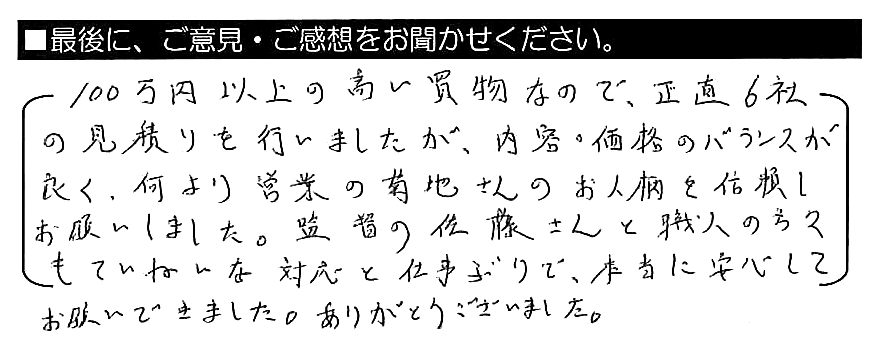 ■最後に、ご意見・ご感想をお聞かせください。
100万円以上の高い買物なので、正直6社
の見積りを行いましたが、内容・価格のバランスが
良く、何より営業の菊地さんのお人柄を信頼し
お願いしました。監督の佐藤さんと職人の方々
もていねいな対応と仕事ぶりで、本当に安心して
お願いできました。ありがとうございました。